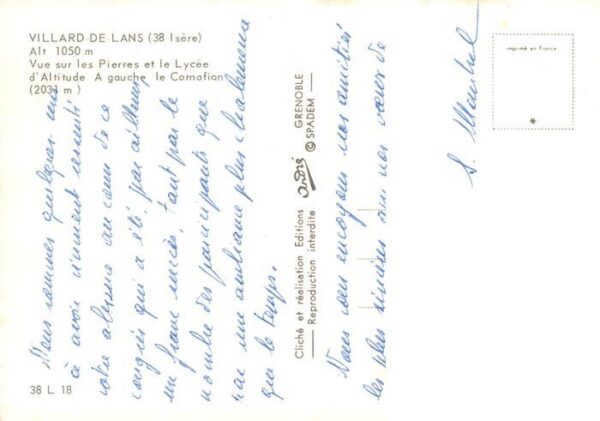 VILLARD DE LANS (38 Isère)
Alt 1050 m
Vue sur les Pierres et le Lycée
d'Altitude A gauche le Cornafion
(2031 m)
Nous sommes quelques uns
à avoir vivement ressenti
votre absence au cours de ce
congrès qui a été, par ailleurs,
un franc succès, tant par le
nombre des participants que
par une ambiance plus chaleureuse
que le temps.
Nous vous envoyons nos amitiés
les plus sincères
nos vœux de
S.
38 L 18
Cliché et réalisation Editions andré GRENOBLE
Reproduction interdite © SPADEM
imprimé en France
*